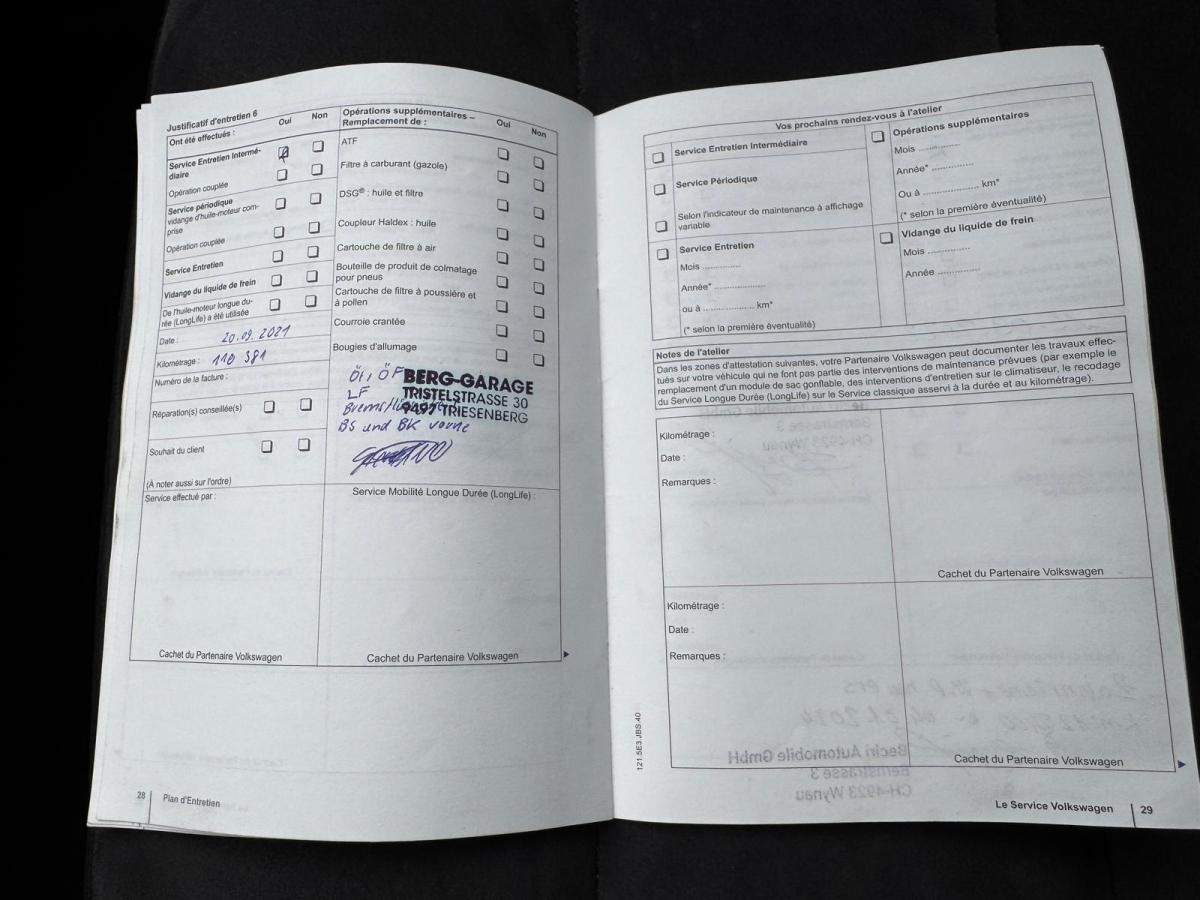 Justificatif d'entretien 6
Ont été effectués :
Oui
Non
Service Entretien Intermé-
diaire
Opération couplée
Service périodique
vidange d'huile-moteur com-
prise
Opération couplée
Service Entretien
Vidange du liquide de frein
De l'huile-moteur longue du-
rée (LongLife) a été utilisée
Date : 20.09.2021
Kilométrage : 110 381
Numéro de la facture :
Réparation(s) conseillée(s)
Souhait du client
(À noter aussi sur l'ordre)
Opérations supplémentaires –
Remplacement de :
Oui
Non
ATF
Filtre à carburant (gazole)
DSG® : huile et filtre
Coupleur Haldex : huile
Cartouche de filtre à air
Bouteille de produit de colmatage
pour pneus
Cartouche de filtre à poussière et
à pollen
Courroie crantée
Bougies d'allumage
Öl, ÖF
LF
BS und BK vorne
BERG-GARAGE
TRISTELSTRASSE 30
9497 TRIESENBERG
Service effectué par :
Service Mobilité Longue Durée (LongLife) :
Cachet du Partenaire Volkswagen
Cachet du Partenaire Volkswagen
28
Plan d'Entretien
Vos prochains rendez-vous à l'atelier
Service Entretien Intermédiaire
Service Périodique
Selon l'indicateur de maintenance à affichage
variable
Service Entretien
Mois ..............
Année* ..................
ou à .................. km*
(* selon la première éventualité)
Opérations supplémentaires
Mois ..............
Année* ..............
Ou à .................... km*
(* selon la première éventualité)
Vidange du liquide de frein
Mois ..............
Année ..............
Notes de l'atelier
Dans les zones d'attestation suivantes, votre Partenaire Volkswagen peut documenter les travaux effec-
tués sur votre véhicule qui ne font pas partie des interventions de maintenance prévues (par exemple le
remplacement d'un module de sac gonflable, des interventions d'entretien sur le climatiseur, le recodage
du Service Longue Durée (LongLife) sur le Service classique asservi à la durée et au kilométrage).
Kilométrage :
Date :
Remarques :
Cachet du Partenaire Volkswagen
Kilométrage :
Date :
Remarques :
Cachet du Partenaire Volkswagen
121.5E3.JBS.40
Le Service Volkswagen
29